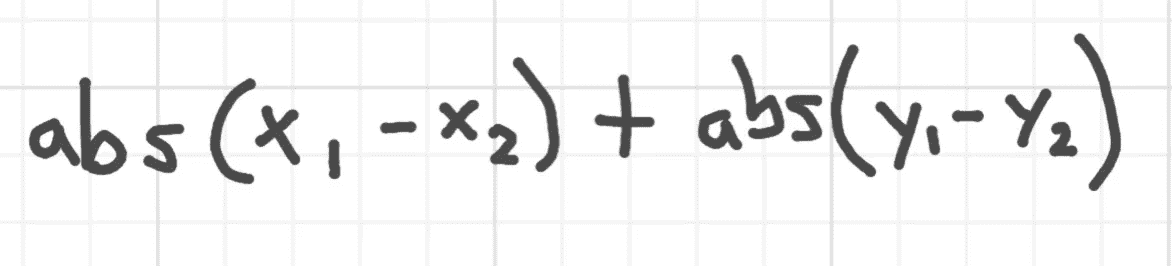 abs(x₁ - x₂) + abs(y₁ - y₂)